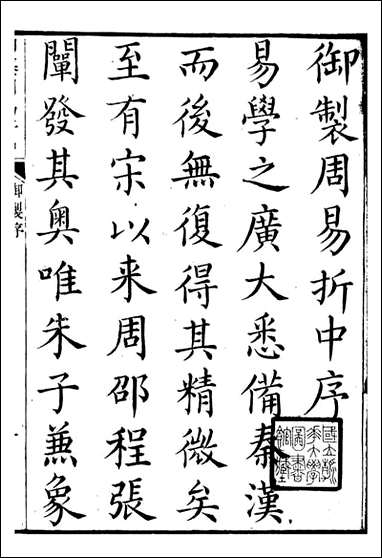 御製周易折中序
易學之廣大悉備秦漢
而後無復得其精微矣
至有宋以来周邵程張
闡發其奥唯朱子蕪象
御製序